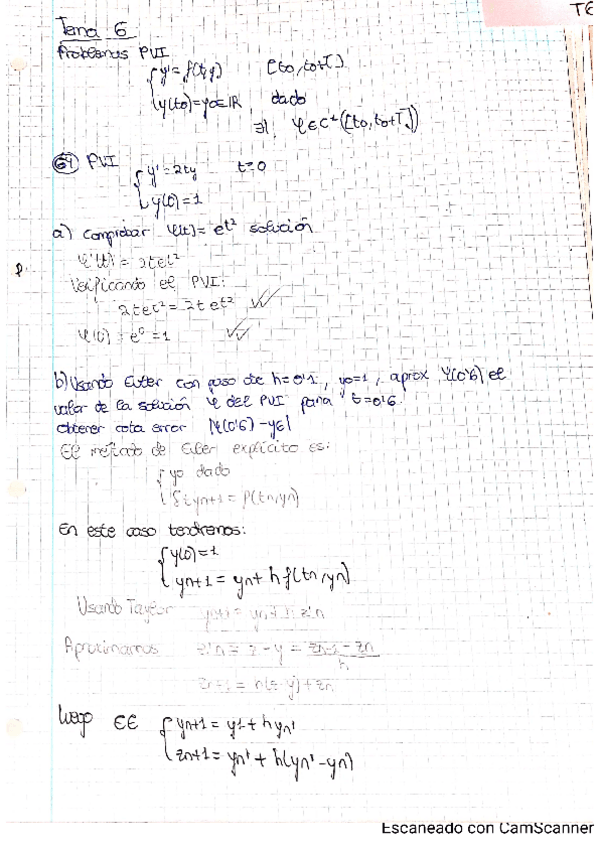 T6
Tema 6
Problemas PVI
y' = f(t,y) [to, to+T]
y(to)=yo∈IR dado
∃! φ∈C²([to, to+T])
64 PVI y' = 2ty t≥0
y(0)=1
a) Comprobar φ(t)= e^t² solución
φ'(t) = 2te^t²
Verificando el PVI:
2te^t² = 2te^t²
φ(0) = e^0 = 1
b) Usando Euler con paso de h=0'1, yo=1, aprox φ(0'6) el
valor de la solución φ del PVI para t=0'6.
Obtener cota error |φ(0'6) - y6|
El método de Euler explícito es:
yo dado
yn+1 = f(tn,yn)
En este caso tendremos:
y(0)=1
yn+1 = yn + h f(tn,yn)
Usando Taylor
Aproximamos z'n = z-y = zn+1 - zn / h
zn+1 = h(z-y)+zn
luego EE yn+1 = y1 + hyn'
zn+1 = yn' + h(yn' - yn)
Escaneado con CamScanner